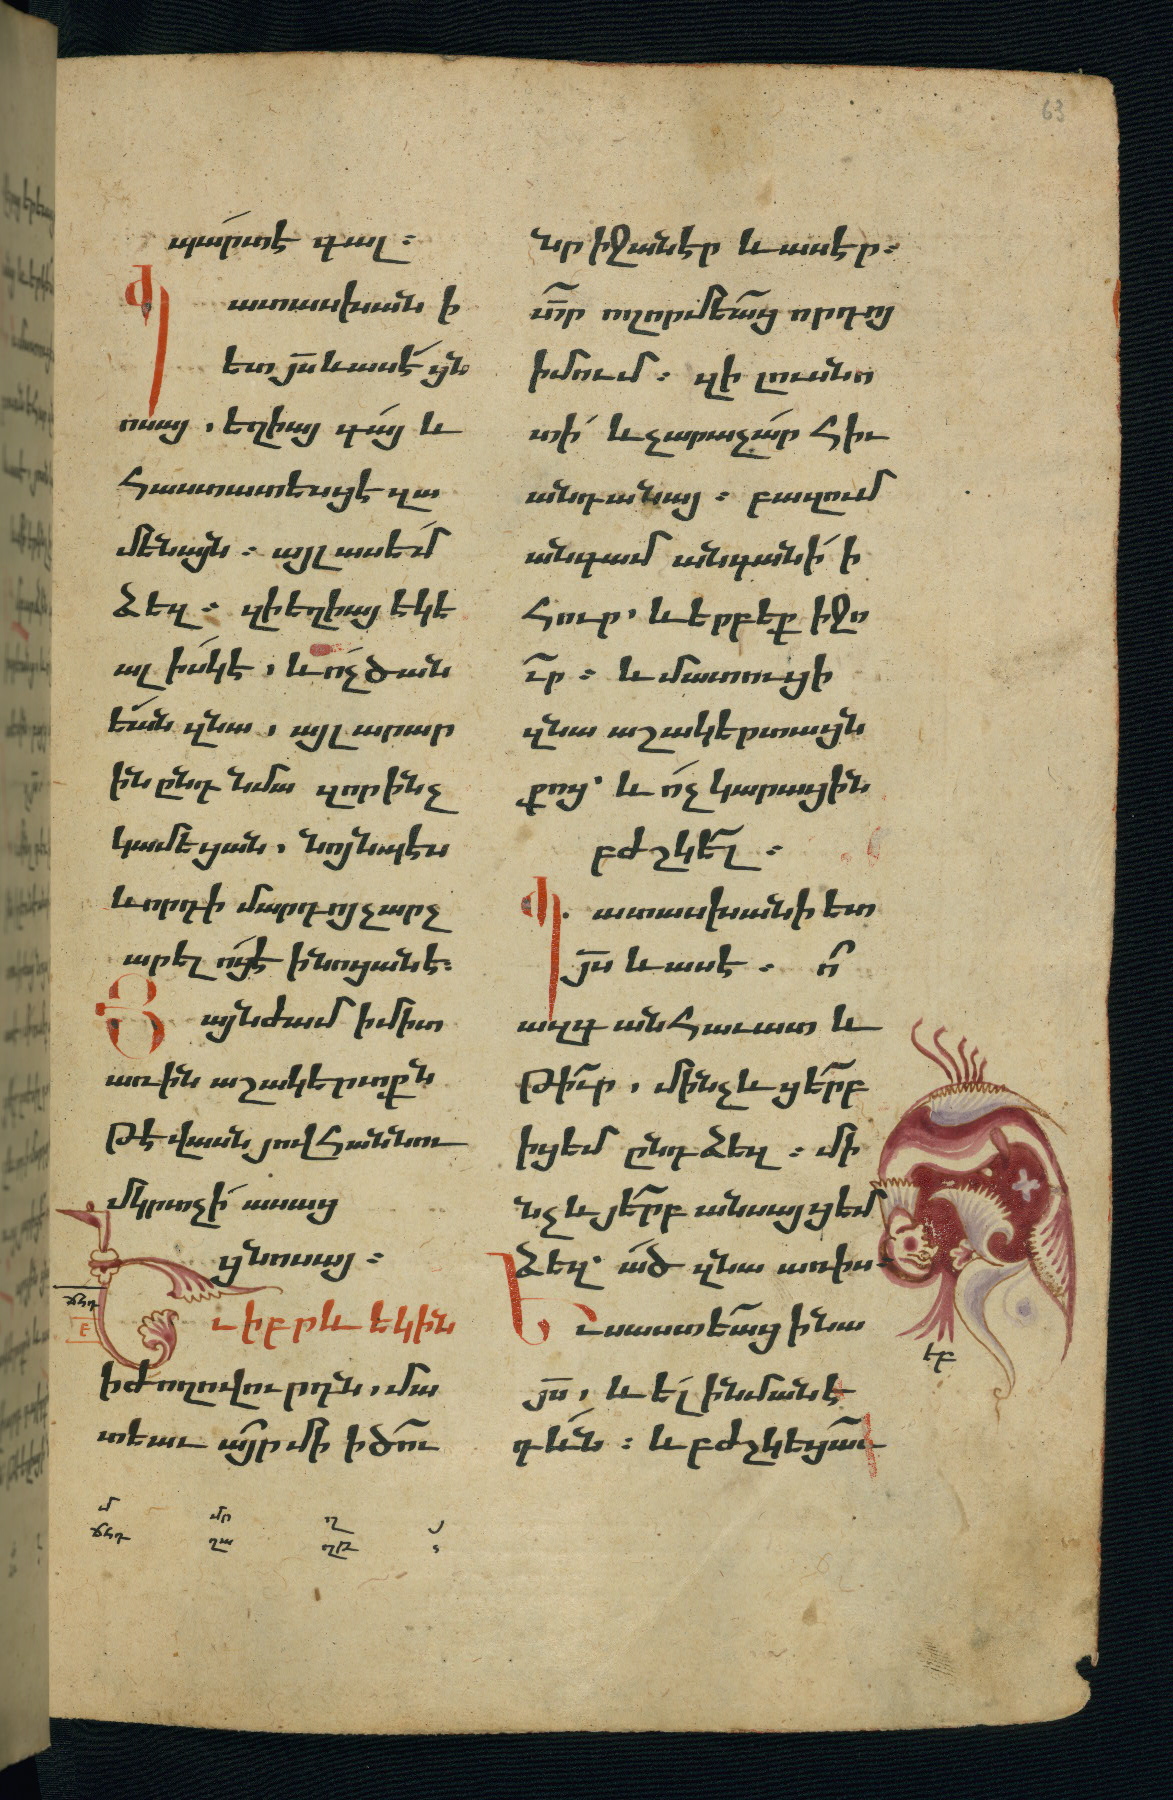 63
պա՛րտէ գալ ։
Պատասխանի
ետ յս և ասէ՛ ցն
ոսայ , եղիայ գա՛յ և
հաստատեսցէ զա
մենայն ։ այլ ասե՛մ
ձեզ ։ զի եղիայ եկե
ալ ի՛սկէ , և ո՛չ ծան
եա՛ն զնա , այլ արար
ին ընդ նմա զոր ինչ
կամեցան . նոյնպէս
և որդի մարդոյ չարչ
արել ո՛ցէ ի նոցանէ ։
Յայնժամ ի միտ
առին աշակերտքն
թէ վասն յովհաննու
մկրտչի՛ ասաց
ցնոսայ ։
Եւ իբրև եկին
ի ժողովուրդն , մա
տեաւ այր մի ի ծու
նր իջանէր և ասէր ։
տր ողորմեաց որդոյ
իմում ։ զի լուսնո
տի՛ և չարաչա՛ր հիւ
անդանայ ։ բազում
անգամ անգանի՛ ի
հուր , և երբեք ի ջո
ւր ։ և մատուցի
զնա աշակերտացն
քոց ՝ և ո՛չ կարացին
բժշկել ։
Պատասխանի ետ
յս և ասէ ։ ո՛
ազգ անհաւատ և
թիւր , մինչև ցերբ
իցեմ ընդ ձեզ ։ մի
նչև յերբ անսայցեմ
ձեզ ՝ ած զնա առիս ։
Եւ սաստեաց ի նա
յս , և ել ի նմանէ
դևն ։ և բժշկեցաւ
ճհդ
բ
եբ
մ
ճհդ
մր
ղա